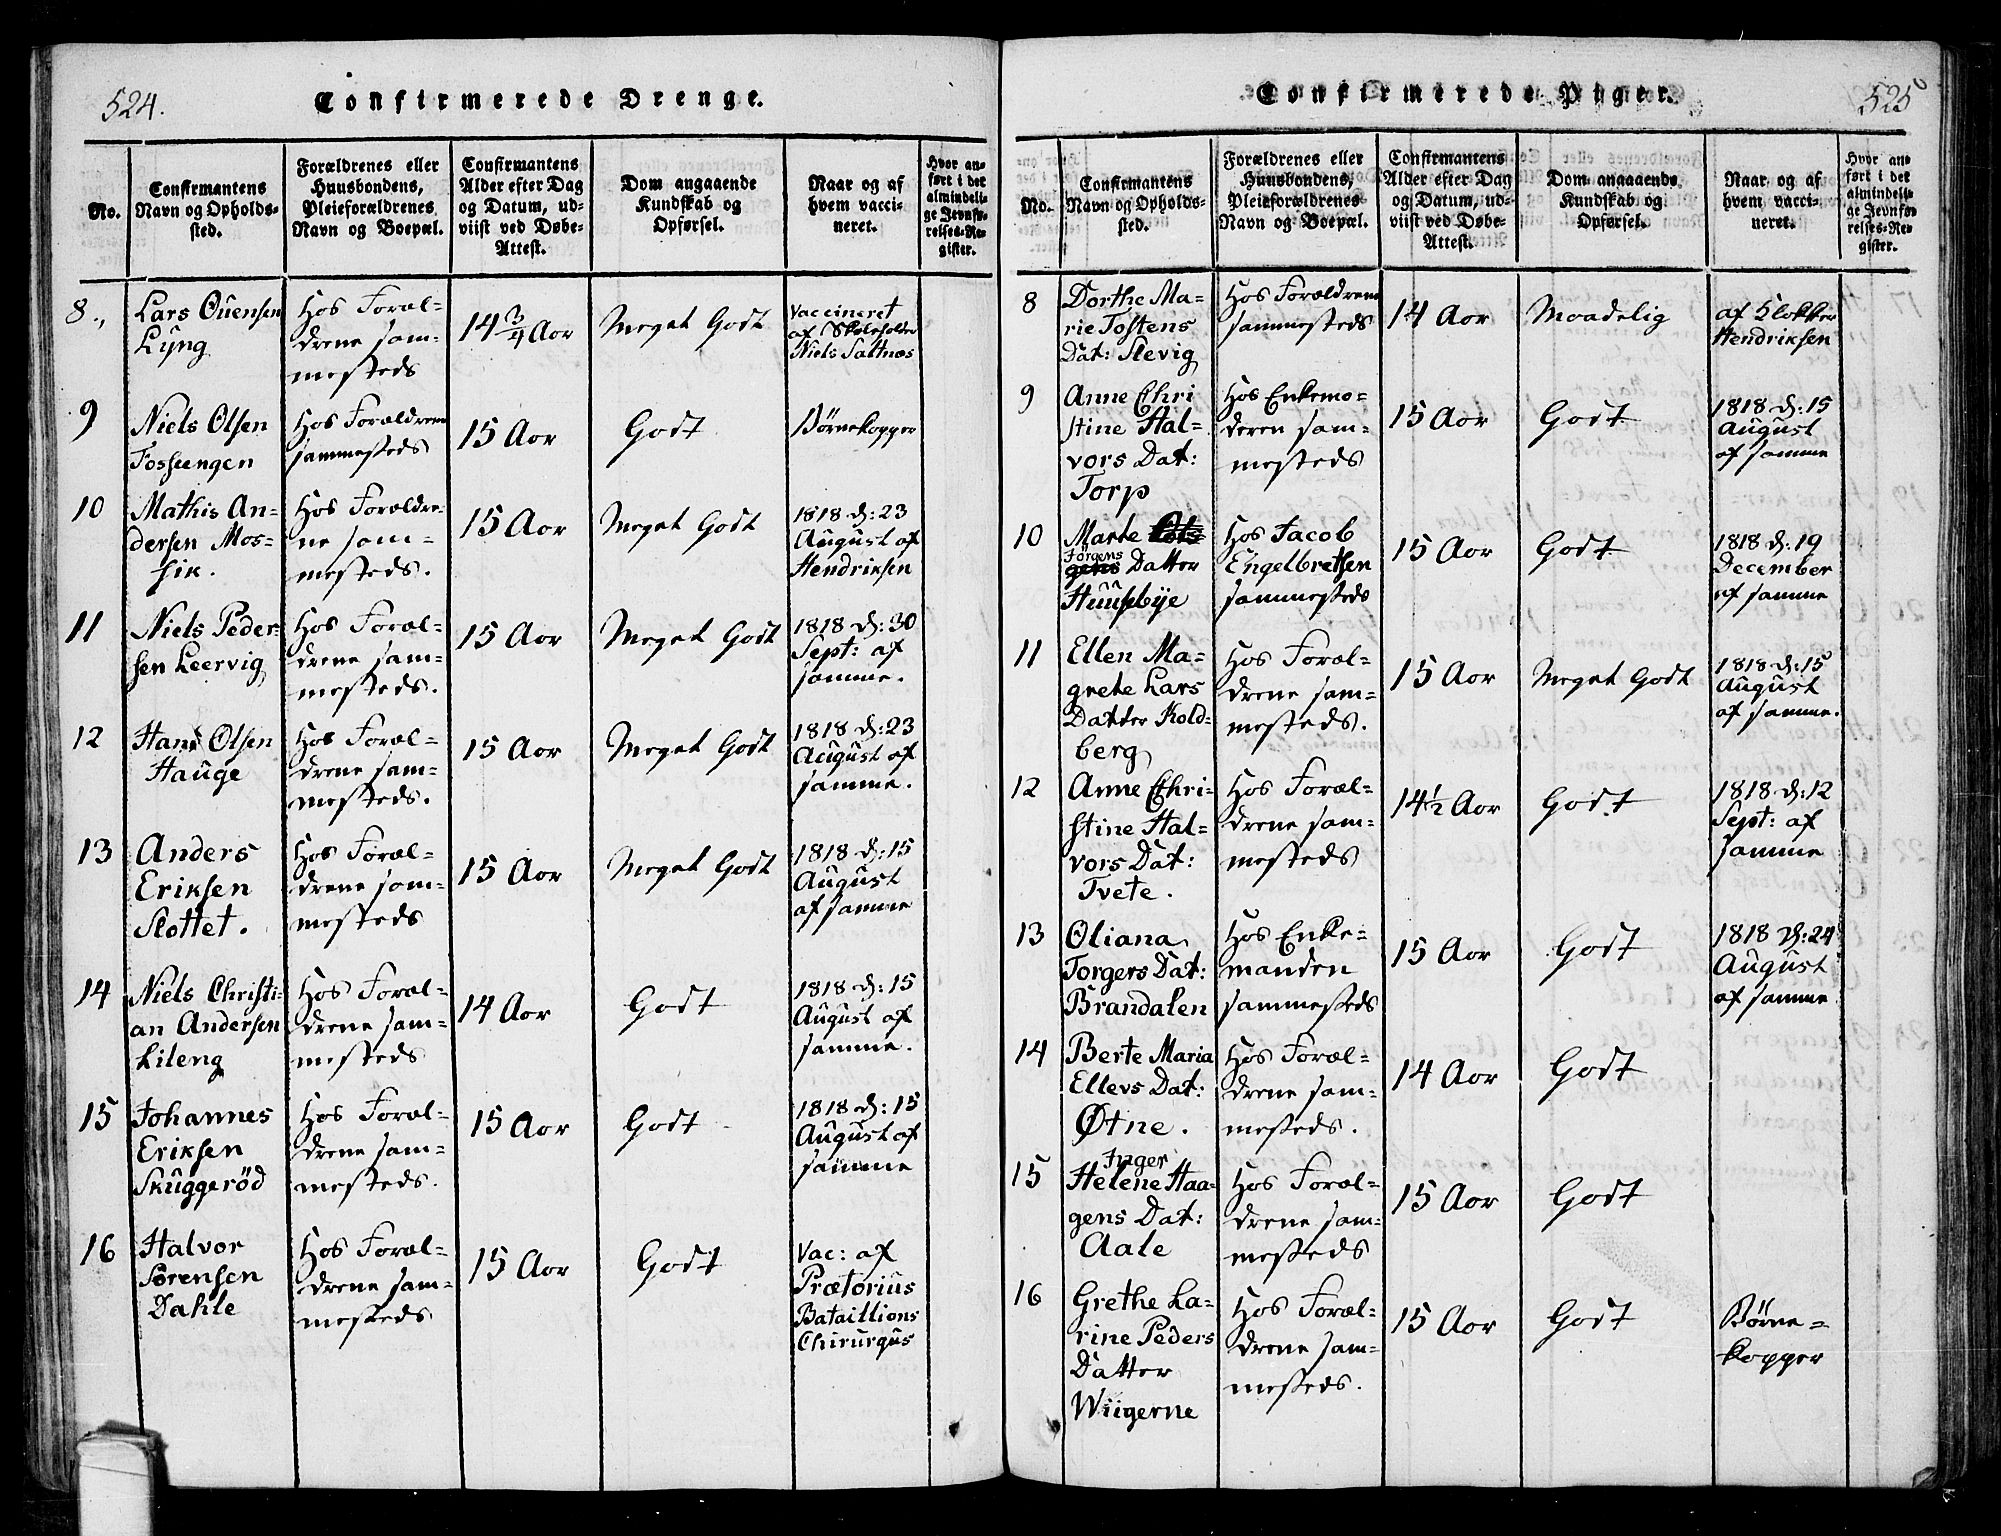 524.
Confirmerede Drenge.
No.
Confirmantens
Navn og Opholds-
sted.
Forældrenes eller
Huusbondens,
Pleieforældrenes
Navn og Boepæl.
Confirmantens
Alder efter Dag
og Datum, ud-
viist ved Døbe-
Attest.
Dom angaaende
Kundskab og
Opførsel.
Naar og af
hvem vacci-
neret.
Hvor an-
ført i det
almindeli-
ge Jevnfø-
relses-Re-
gister.
8.,
Lars Ouensen
Lyng
Hos Foræl-
drene sam-
mesteds
14 3/4 Aor
Meget Godt
Vaccineret
af Skoleholder
Niels Saltnæs
9
Niels Olsen
Fossengen
Hos Forældrene
sammesteds
15 Aor
Godt
Børnekopper
10
Mathis An-
dersen Mos-
sik.
Hos Forældre-
ne sam-
mesteds.
15 Aor
Meget Godt
1818 d: 23
August af
Hendriksen
11
Niels Peder-
sen Leervig
Hos Foræl-
drene sam-
mesteds.
15 Aor
Meget Godt
1818 d: 30
Sept: af
samme.
12
Hans Olsen
Hauge
Hos Foræl-
drene sam-
mesteds.
15 Aor
Meget Godt
1818 d: 23
August af
samme.
13
Anders
Eriksen
Slottet.
Hos Foræl-
drene sam-
mesteds
15 Aor
Meget Godt
1818 d: 15
August
af samme
14
Niels Christi-
an Andersen
Lileng
Hos Foræl-
drene sam-
mesteds
14 Aor
Godt
1818 d: 15
August af
samme.
15
Johannes
Eriksen
Skuggeröd
Hos Foræl-
drene sam-
mesteds.
15 Aor
Godt
1818 d: 15
August af
samme
16
Halvor
Sørensen
Dahle
Hos Foræl-
drene sam-
mesteds
15 Aor
Godt
Vac: af
Prætorius
Bataillions
Chirurgus
Confirmerede Piger.
525
No.
Confirmantens
Navn og Opholds-
sted.
Forældrenes eller
Huusbondens,
Pleieforældrenes
Navn og Boepæl.
Confirmantens
Alder efter Dag
og Datum, ud-
viist ved Døbe-
Attest.
Dom angaaende
Kundskab og
Opførsel.
Naar og af
hvem vacci-
neret.
Hvor an-
ført i det
almindeli-
ge Jevnfø-
relses-Re-
gister.
8
Dorthe Ma-
rie Tostens
Dat: Slevig
Hos Forældrene
sammesteds
14 Aor
Moadelig
af Klokker
Hendriksen
9
Anne Chri
stine Hal-
vors Dat:
Torp
Hos Enkemo-
deren sam-
mesteds
15 Aor
Godt
1818 d: 15
August
af samme
10
Marte
Jörgens
Datter
Huusebÿe
Hos Jacob
Engelbretsen
sammesteds
15 Aor
Godt
1818 d: 19
December
af samme
11
Ellen Ma-
grete Lars
Datter Kold-
berg
Hos Foræl-
drene sam-
mesteds.
15 Aor
Meget Godt
1818 d: 15
August
af samme.
12
Anne Chri-
stine Hal-
vors Dat:
Tvete.
Hos Foræl-
drene sam-
mesteds
14 1/2 Aor
Godt
1818 d: 12
Sept: af
samme
13
Oliana
Torgers Dat:
Brandalen
Hos Enke-
manden
sammesteds
15 Aor
Godt
1818 d: 24
August
af samme
14
Berte Maria
Ellevs Dat:
Øtne.
Hos Foræl-
drene sam-
mesteds.
14 Aor
Godt
15
Inger
Helene Haa-
gens Dat:
Aale
Hos Foræl-
drene sam-
mesteds
15 Aor
Godt
16
Grethe La-
rine Peders
Datter
Wiigerne
Hos Foræl-
drene sam-
mesteds.
15 Aor
Godt
Børne-
kopper